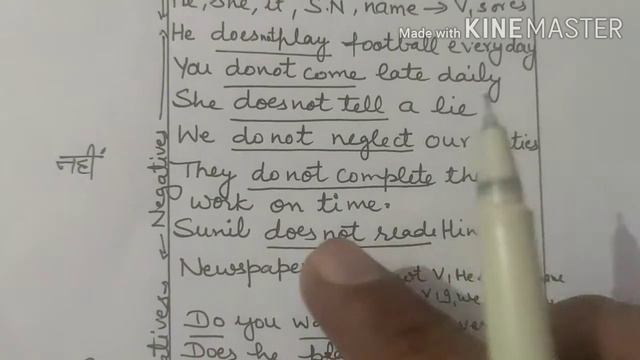 He, She, It, S.N, name → V1 s or es
Made with KINEMASTER
He doesnot play football everyday
You donot come late daily
She does not tell a lie
We do not neglect our
They do not complete
work on time.
Sunil does not read
Newspaper
not V1, He
we
Do you
Does he
नहीं
Negatives